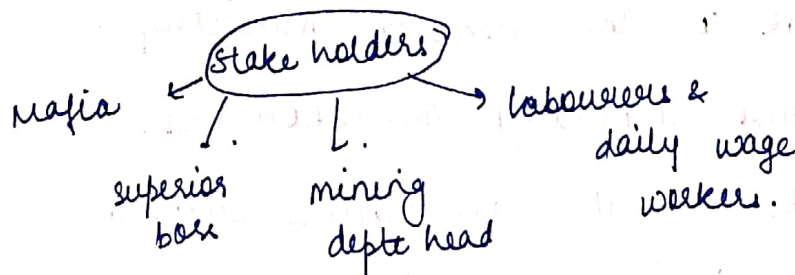 Stake holders
Mafia
superior
boss
mining
deptt head
labourers &
daily wage
workers.